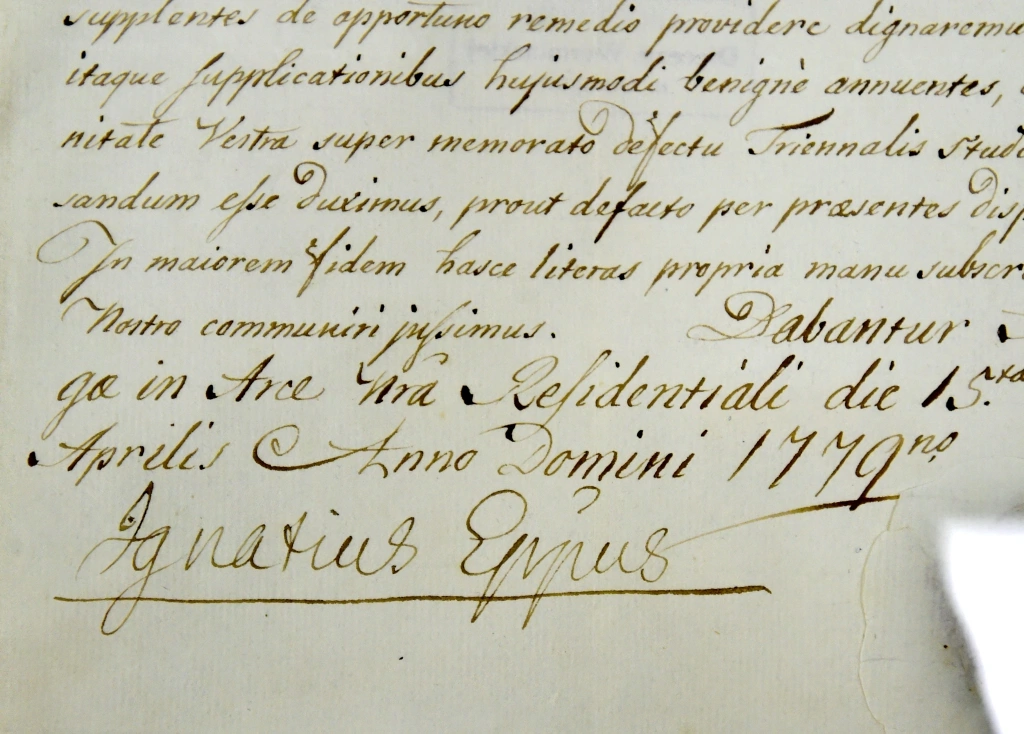 supplentes de opportuno remedio providere dignaremu
itaque supplicationibus hujusmodi benignè annuentes,
nitate Vestra super memorato defectu Triennalis studi
sandum esse duximus, prout defacto per præsentes disp
In maiorem fidem hasce literas propria manu subscri
Nostro communiri jussimus. Dabantur
gæ in Arce Nrã Residentiali die 15.ta
Aprilis Anno Domini 1779no
Ignatius Eppus